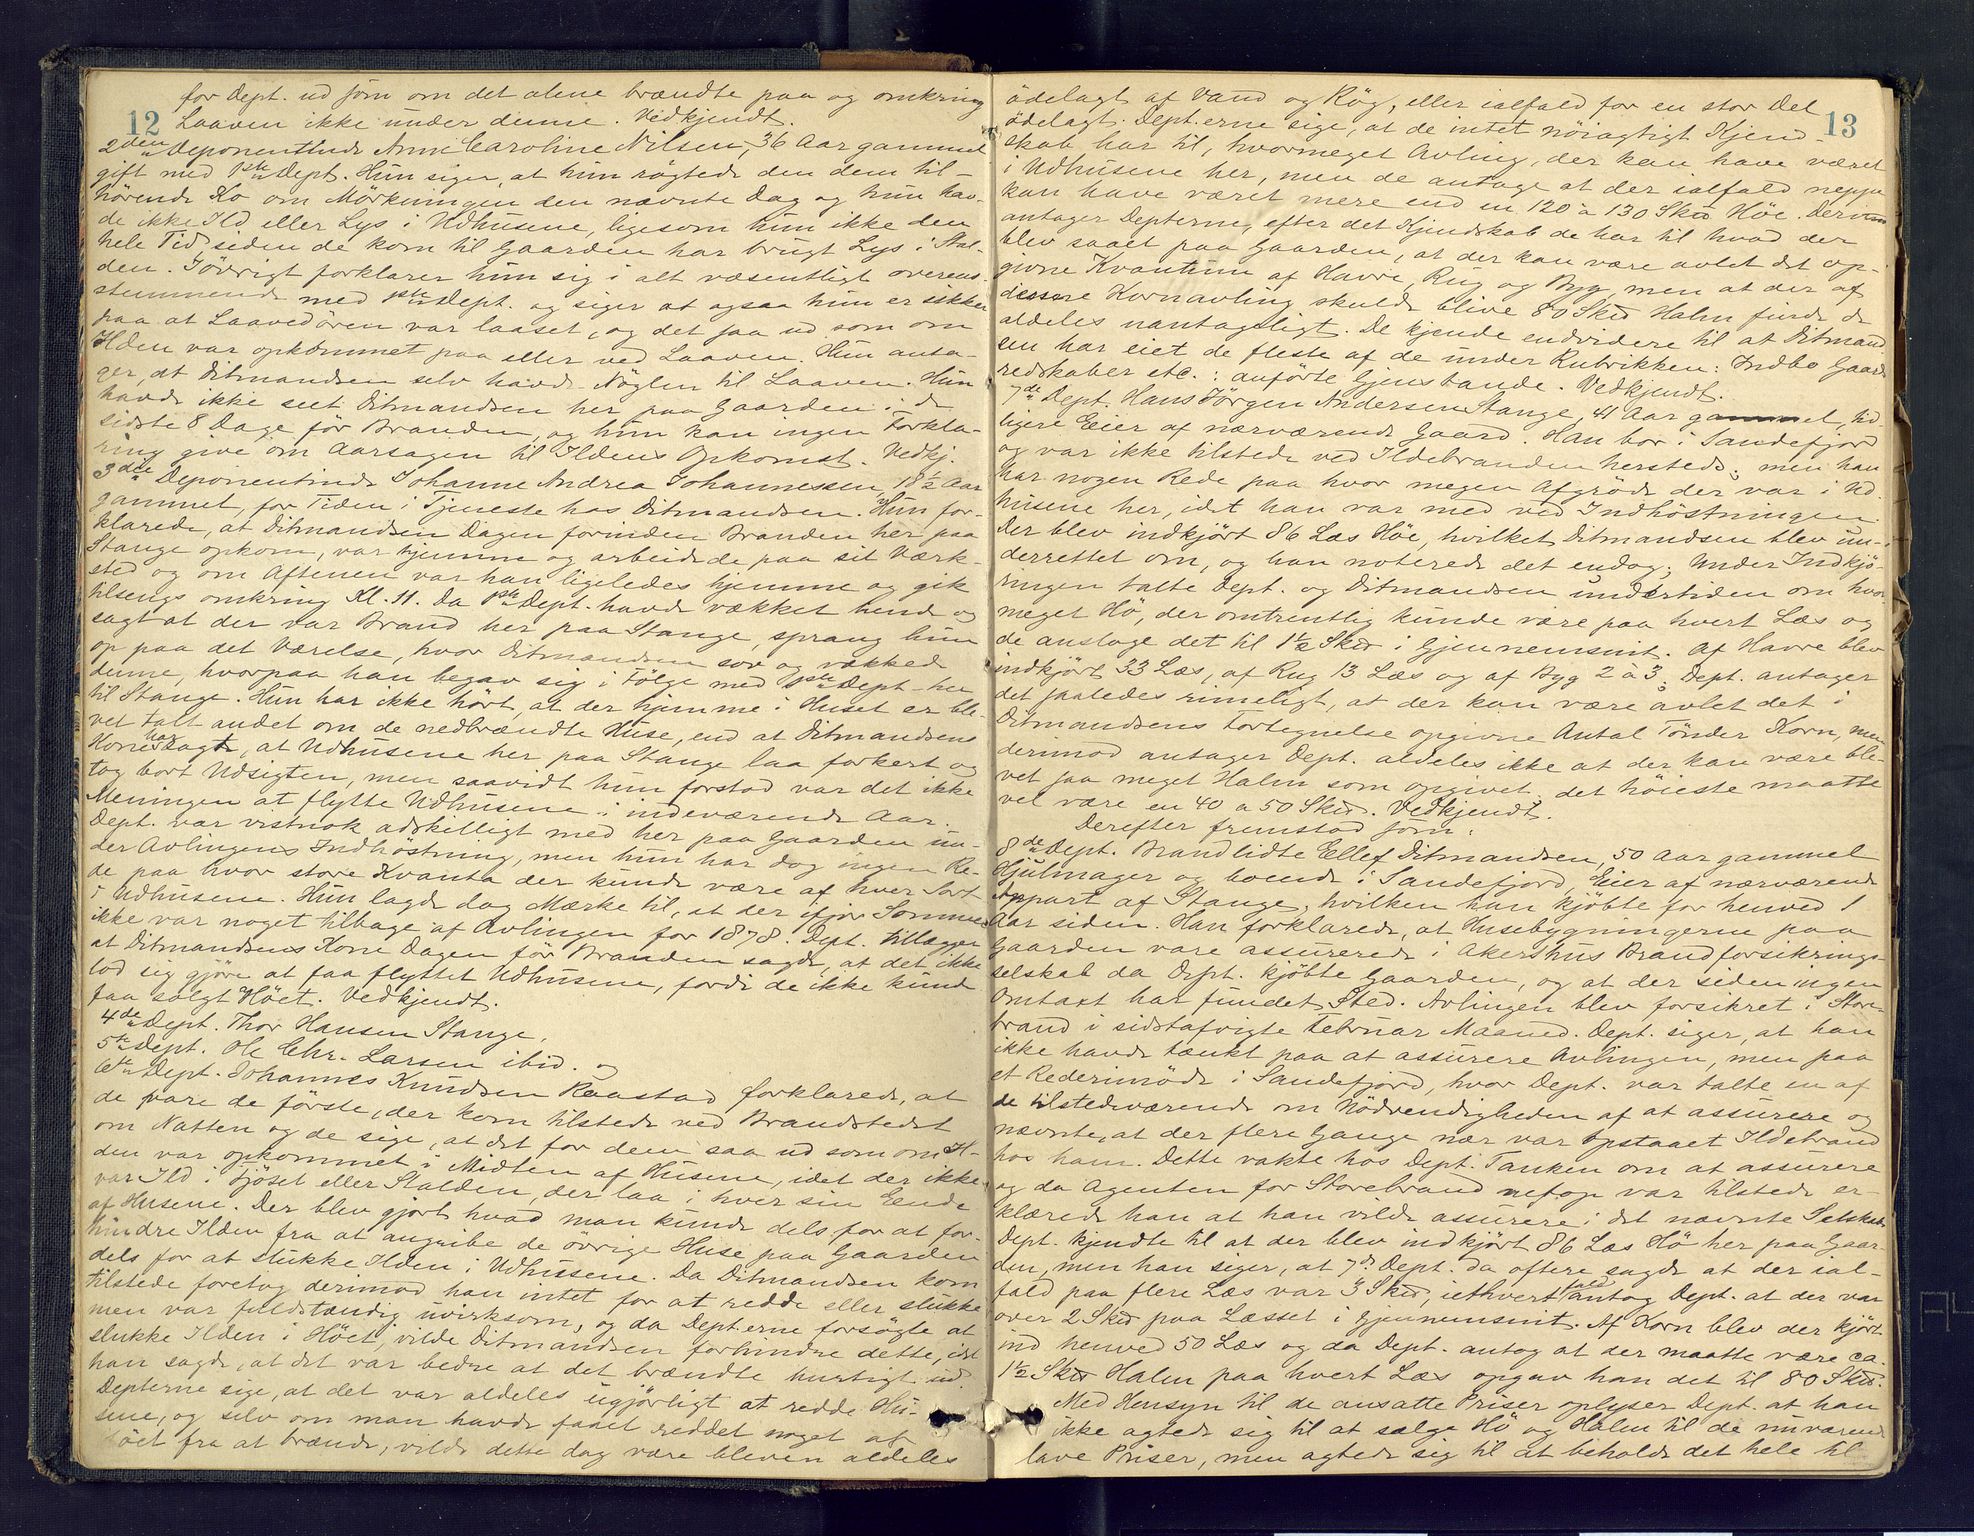 12
for Dept. ud som om det alene brændte paa og omkring
Laaven ikke under denne. Vedkjendt.
2den Deponentinde Anne Caroline Nilsen, 36 Aar gammel
gift med 1ste Dept. Hun siger, at hun røgtede den dem til-
hørende Ko om Mørkningen den nævnte Dag og hun hav-
de ikke Ild eller Lys i Udhusene, ligesom hun ikke den
hele Tid siden de kom til Gaarden har brugt Lys i Stal-
den. Iøvrigt forklarer hun sig i alt væsentligt overens-
stemmende med 1ste Dept. og siger at ogsaa hun er sikker
paa at Laavedøren var laaset, og det saa ud som om
Ilden var opkommet paa eller ved Laaven. Hun anta-
ger, at Ditmandsen selv havde Nøglen til Laaven. Hun
havde ikke seet Ditmandsen her paa Gaarden i de
sidste 8 Dage før Branden, og hun kan ingen Forkla-
ring give om Aarsagen til Ildens Opkomst. Vedkj.
3die Deponentinde Johanne Andrea Johannessen, 18½ Aar
gammel, for Tiden i Tjeneste hos Ditmandsen. Hun for-
klarede, at Ditmandsen Dagen forinden Branden her paa
Stange opkom, var hjemme og arbeidede paa sit Værk-
sted og om Aftenen var han ligeledes hjemme og gik
tilsengs omkring Kl. 11. Da 1ste Dept. havde vækket hende og
sagt at der var Brand her paa Stange, sprang hun
op paa det Værelse, hvor Ditmandsen sov og vækkede
denne, hvorpaa han begav sig i Følge med 1ste Dept. her
til Stange. Hun har ikke hørt, at der hjemme i Huset er ble-
vet talt andet om de nedbrændte Huse, end at Ditmandsens
Kone har sagt, at Udhusene her paa Stange laa forkert og
tog bort Udsigten, men saavidt hun forstod var det ikke
Meningen at flytte Udhusene i indeværende Aar.
Dept. var vistnok adskilligt med her paa Gaarden un-
der Avlingens Indhøstning, men hun har dog ingen Re-
de paa hvor store Kvanta der kunde være af hver Sort
i Udhusene. Hun lagde dog Mærke til, at der ifjor Sommer
ikke var noget tilbage af Avlingen for 1878. Dept. tillægger
at Ditmandsens Kone Dagen før Branden sagde, at det ikke
lod sig gjøre at faa flyttet Udhusene, fordi de ikke kunde
faa solgt Høet. Vedkjendt.
4de Dept. Thor Hansen Stange,
5te Dept. Ole Chr. Larsen ibid. og
6te Dept. Johannes Knudsen Raastad forklarede, at
de vare de første, der kom tilstede ved Brandstedet
om Natten og de sige, at det for dem saa ud som om Il-
den var opkommet i Midten af Husene, idet der ikke
var Ild i Fjøset eller Stalden, der laa i hver sin Ende
af Husene. Der blev gjort hvad man kunde dels for at for-
hindre Ilden fra at angribe de øvrige Huse paa Gaarden
dels for at slukke Ilden i Udhusene. Da Ditmandsen kom
tilstede foretog derimod han intet for at redde eller slukke
men var fuldstændig uvirksom, og da Depterne forsøgte at
slukke Ilden i Høet, vilde Ditmandsen forhindre dette, idet
han sagde, at det var bedre at det brændte hurtigt ud.
Depterne sige, at det var aldeles ugjørligt at redde Hu-
sene, og selv om man havde faaet reddet noget af
Høet fra at brænde, vilde dette dog være bleven aldeles
13
ødelagt af Vand og Røg, eller ialfald for en stor Del
ødelagt. Depterne sige, at de intet nøiagtigt Kjend-
skab har til, hvormeget Avling, der kan have været
i Udhusene her, men de antage at der ialfald neppe
kan have været mere end en 120 à 130 Skd Høe. Derimod
antager Depterne, efter det Kjendskab de har til hvad der
blev saaet paa Gaarden, at der kan være avlet det op-
givne Kvantum af Havre, Rug og Byg, men at der af
denne Kornavling skulde blive 80 Skd Halm finde de
aldeles uantageligt. De kjende endvidere til at Ditmand-
sen har eiet de fleste af de under Rubrikken: Indbo Gaards-
redskaber etc.: anførte Gjenstande. Vedkjendt.
7de Dept. Hans Jørgen Andersen Stange, 41 Aar gammel, tid-
ligere Eier af nærværende Gaard. Han bor i Sandefjord
og var ikke tilstede ved Ildebranden hersteds; men han
har nogen Rede paa hvor megen Afgrøde der var i Ud-
husene her, idet han var med ved Indhøstningen.
Der blev indkjørt 86 Læs Høe, hvilket Ditmandsen blev un-
derrettet om, og han noterede det endog; Under Indkjø-
ringen talte Dept. og Ditmandsen undertiden om hvor
meget Hø, der omtrentlig kunde være paa hvert Læs og
de ansloge det til 1½ Skd i Gjennemsnit. Af Havre blev
indkjørt 33 Læs, af Rug 13 Læs og af Byg 2 à 3. Dept. antager
det saaledes rimeligt, at der kan være avlet det i
Ditmandsens Fortegnelse opgivne Antal Tønder Korn, men
derimod antager Dept. aldeles ikke at der kan være ble-
vet saa meget Halm som opgivet, det høieste maatte
vel være en 40 a 50 Skd. Vedkjendt.
Derefter fremstod som:
8de Dept. Brandlidte Ellef Ditmandsen, 50 Aar gammel
Hjulmager og boende i Sandefjord, Eier af nærværende
Appart af Stange, hvilken han kjøbte for henved 1
Aar siden. Han forklarede, at Husebygningerne paa
Gaarden vare assurerede i Akershus Brandforsikrings-
selskab da Dept. kjøbte Gaarden, og at der siden ingen
Omtaxt har fundet Sted. Avlingen blev forsikret i Store-
brand i sidstafvigte Februar Maaned. Dept. siger, at han
ikke havde tænkt paa at assurere Avlingen, men paa
et Rederimøde i Sandefjord, hvor Dept. var talte en af
de tilstedeværende om Nødvendigheden af at assurere og
nævnte, at der flere Gange nær var opstaaet Ildebrand
hos ham. Dette vakte hos Dept. Tanken om at assurere
og da Agenten for Storebrand netop var tilstede er-
klærede han at han vilde assurere i det nævnte Selskab.
Dept. kjendte til at der blev indkjørt 86 Læs Hø her paa Gaar-
den, men han siger, at 7de Dept. da oftere sagde at der ial-
fald paa flere Læs var 3 Skd, iethvertfald antog Dept. at der var
over 2 Skd paa Læsset i Gjennemsnit. Af Korn blev der kjørt
ind henved 50 Læs og da Dept. antog at der maatte være ca.
1½ Skd Halm paa hvert Læs opgav han det til 80 Skd.
Med Hensyn til de ansatte Priser oplyser Dept. at han
ikke agtede sig til at sælge Hø og Halm til de nuværende
lave Priser, men agtede sig til at beholde det hele til